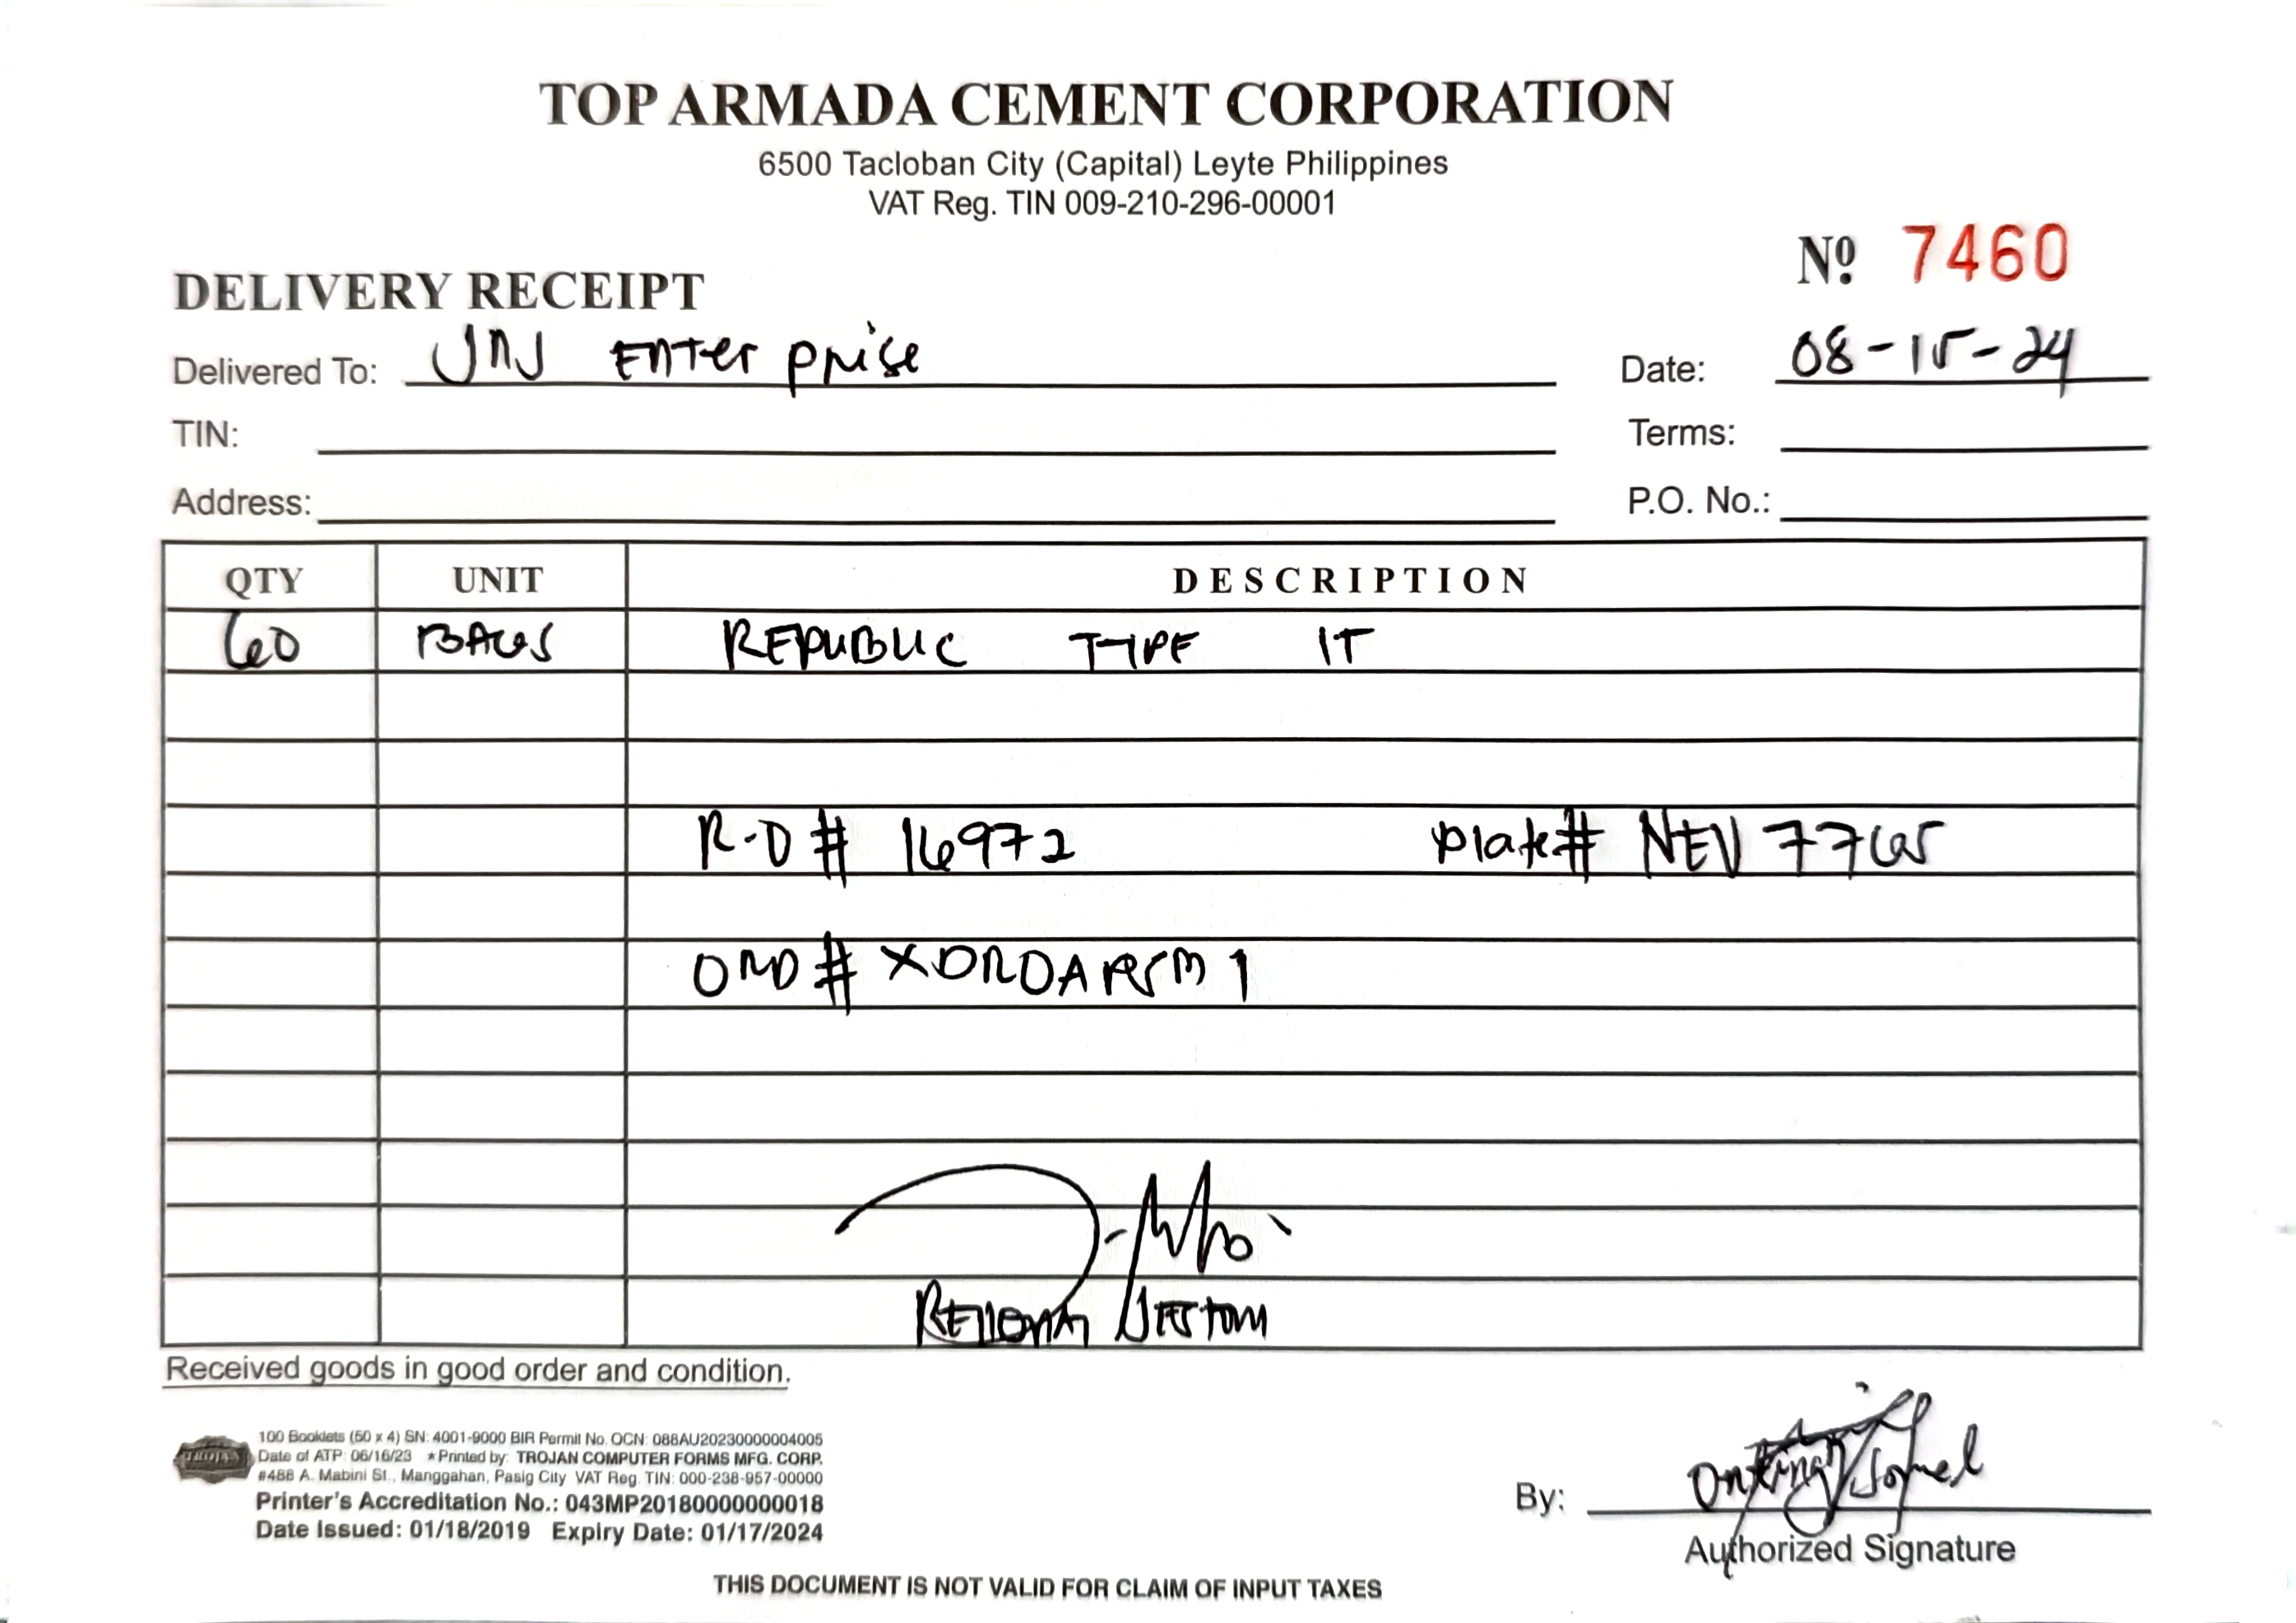 TOP ARMADA CEMENT CORPORATION
6500 Tacloban City (Capital) Leyte Philippines
VAT Reg. TIN 009-210-296-00001
Nº 7460
DELIVERY RECEIPT
Delivered To: JNJ Enterprise
Date: 08-15-24
TIN:
Terms:
Address:
P.O. No.:
QTY UNIT DESCRIPTION
60 BAGS REPUBLIC TYPE IT
R-D# 16972 Plate# NEV 7765
ORD#
Received goods in good order and condition.
100 Booklets (50 x 4) SN: 4001-9000 BIR Permit No. OCN: 088AU20230000004005
Date of ATP: 06/16/23 ★Printed by: TROJAN COMPUTER FORMS MFG. CORP.
#488 A. Mabini St., Manggahan, Pasig City VAT Reg. TIN: 000-238-957-00000
Printer's Accreditation No.: 043MP20180000000018
Date Issued: 01/18/2019 Expiry Date: 01/17/2024
By:
Authorized Signature
THIS DOCUMENT IS NOT VALID FOR CLAIM OF INPUT TAXES